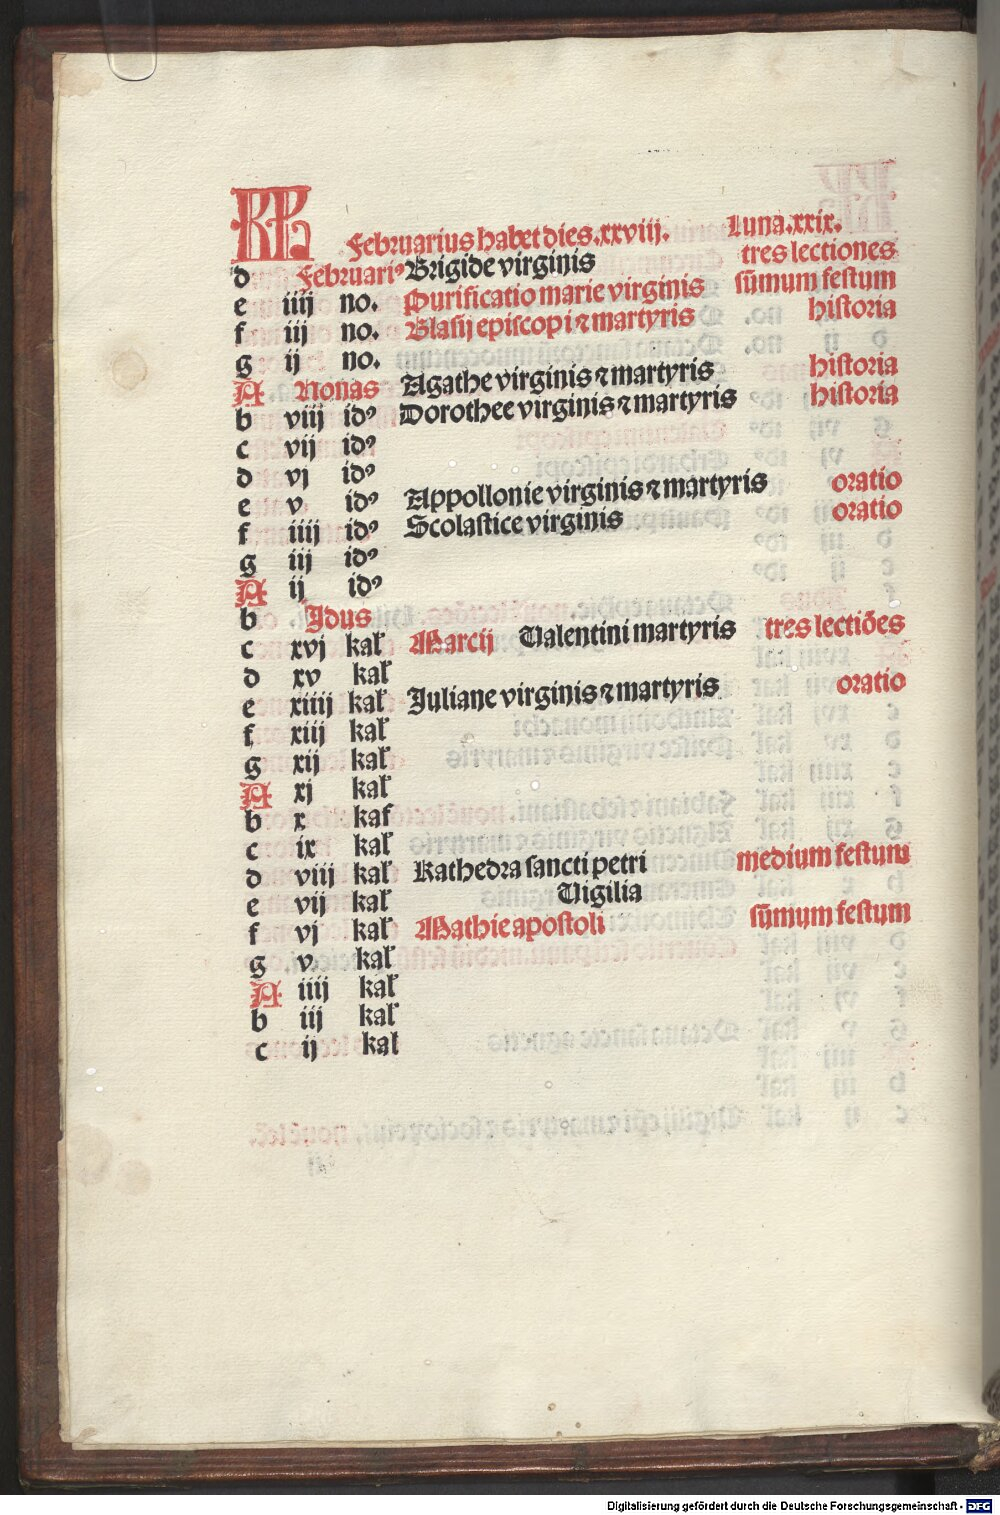 KL Februarius habet dies.xxviij. Luna.xxix.
d Februariꝰ Brigide virginis tres lectiones
e iiij no. Purificatio marie virginis sūmum festum
f iij no. Blasij episcopi ⁊ martyris historia
g ij no.
A Nonas Agathe virginis ⁊ martyris historia
b viij idꝰ Dorothee virginis ⁊ martyris historia
c vij idꝰ
d vj idꝰ
e v idꝰ Appollonie virginis ⁊ martyris oratio
f iiij idꝰ Scolastice virginis oratio
g iij idꝰ
A ij idꝰ
b Idus
c xvj kal̕ Marcij Valentini martyris tres lectiōes
d xv kal̕
e xiiij kal̕ Juliane virginis ⁊ martyris oratio
f xiij kal̕
g xij kal̕
A xj kal̕
b x kaf
c ix kal̕
d viij kal̕ Kathedra sancti petri medium festum
e vij kal̕ Vigilia
f vj kal̕ Mathie apostoli sūmum festum
g v kal̕
A iiij kal̕
b iij kal̕
c ij kal
Digitalisierung gefördert durch die Deutsche Forschungsgemeinschaft - DFG